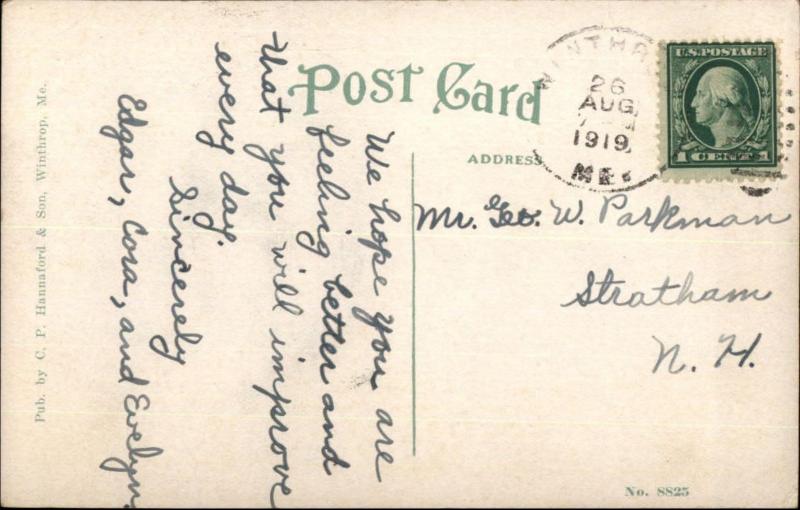 Post Card
WINTHR
26
AUG
1919
ME.
U.S. POSTAGE
1 CENT 1
ADDRESS
Mr. Geo. W. Parkman
Stratham
N. H.
We hope you are
feeling better and
that you will improve
every day.
Sincerely
Edgar, Cora, and Evelyn.
Pub. by C. P. Hannaford & Son, Winthrop, Me.
No. 8825